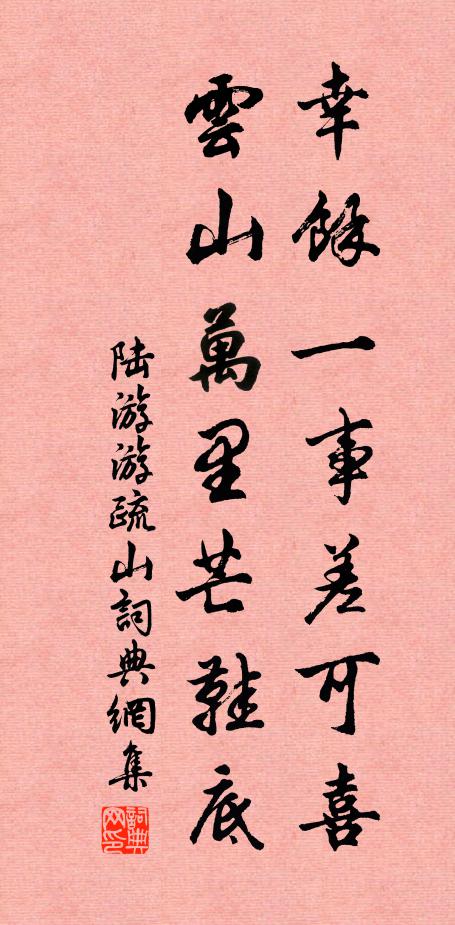 幸餘一事差可喜
雲山萬里芒鞋底
陆游游疏山詞典網集
詞典网印